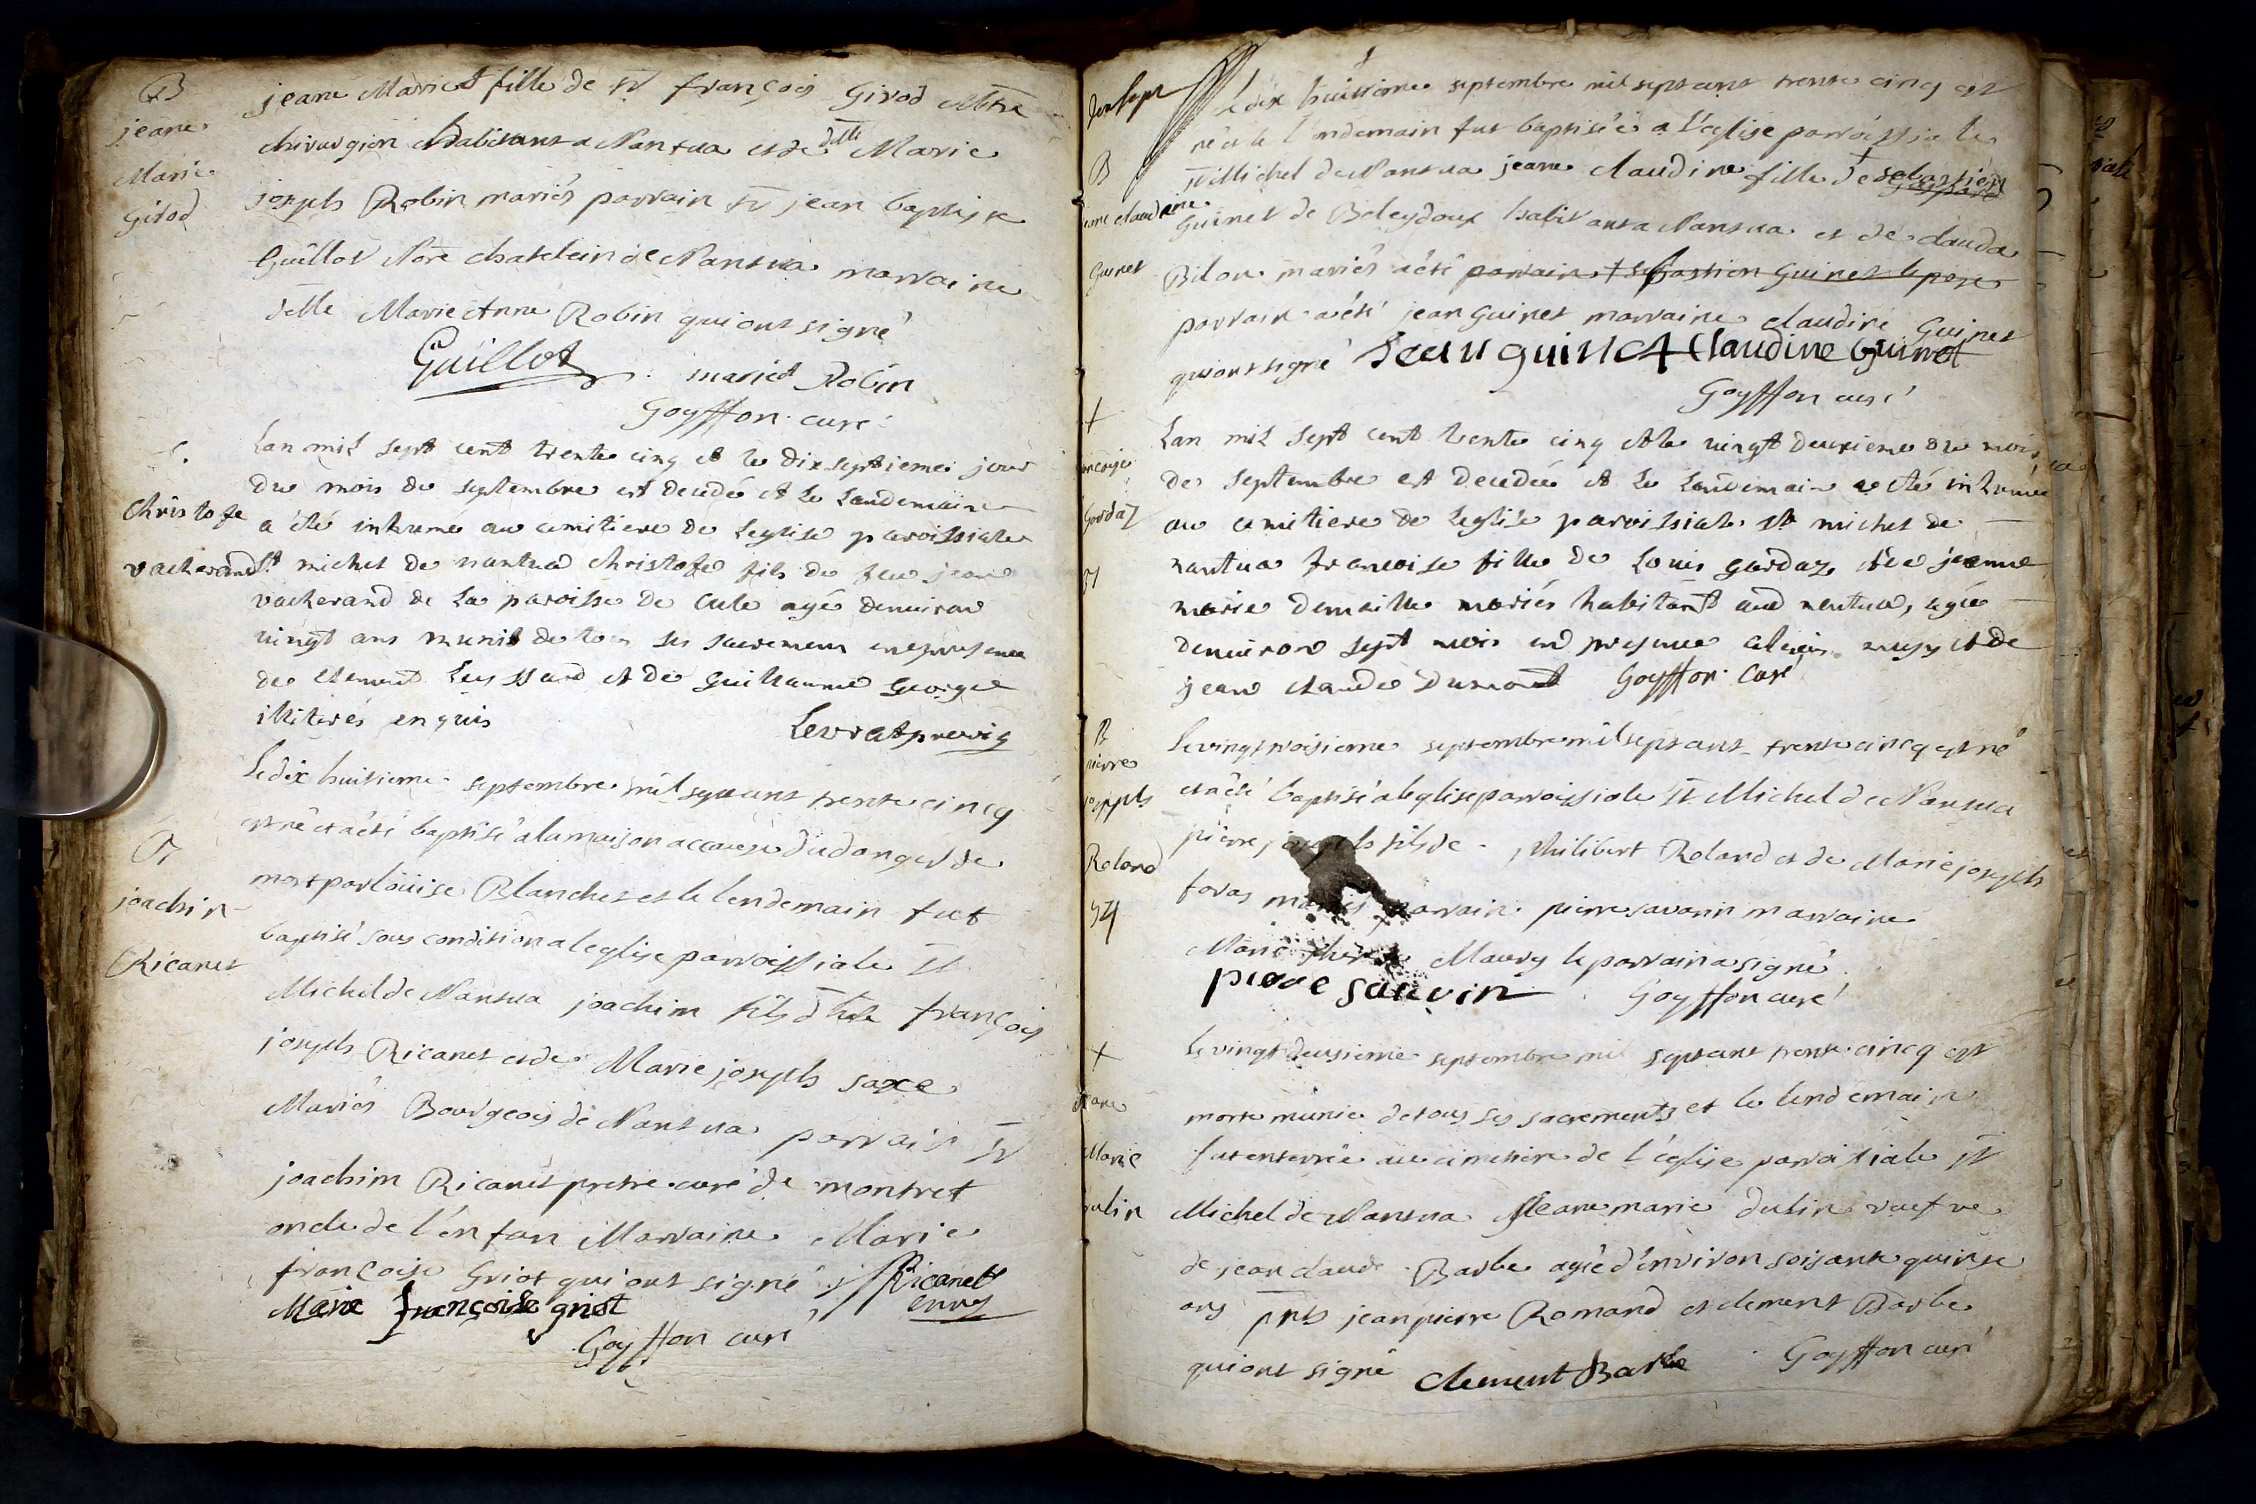 B
jeane
Marie
Girod
jeane Mariet fille de sr françois Girod Mtre
chirurgien habitant a Nantua et de delle Marie
joseph Robin mariés parrain sr jean baptiste
Guillot Nore chatelein de Nantua marraine
delle Marie Anne Robin qui ont signé
Guillot mariet Robin
Goyffon curé
christofe
vacherand
Lan mil sept cent trente cinq et le dix septieme jour
du mois de septembre est decedé et le Landemain
a été inhumé au cemitiere de Leglise paroissiale
st michel de nantua christofe fils de feu jean
vacherand de La paroisse de agé denviron
vingt ans munis de tous ses sacremens en presence
de clement Leyssard et de guillaume george
illiterés enquis Levrat previc
joachin
Ricanet
Le dix huitieme septembre mil sept cent trente cincq
est né et a été baptisé a la maison a cause du danger de
mort par loüise Blanchet et le lendemain fut
baptisé sous condition a leglise parroissiale st
Michel de Nantua joachim fils de françois
joseph Ricanet et de Marie joseph saxe
Mariés Bourgeois de Nantua parrain sr
joachim Ricanet pretre curé de montret
oncle de l'enfan Marraine Marie
françoise Griot qui ont signé Ricanet
Marie françoise griot curé
Goyffon curé
B
jeane claudine
Guinet
Le dix huitieme septembre mil sept cent trente cinq est
née et le l'endemain fut baptisée a l'eglise parroissiale
st Michel de Nantua jeane claudine fille de sebastien
Guinet de Beleydoux habitant a Nantua et de clauda
Bilon mariés a été parrain sebastien Guinet le pere
parrain a été jean Guinet marraine claudine Guinet
qui ont signé Jean guinet Claudine Guinet
Goyffon curé
+
francoise
Gordaz
Lan mil sept cent trente cinq et le vingt deuxieme du mois
de septembre est decedée et le Landemain a été inhumée
au cemitiere de Leglise paroissiale st michel de
nantua francoise fille de Louis gardaz et de jeanne
marie demville mariés habitant aud nantua, agée
denviron sept mois en presence et de
jean claude Dumont Goyffon Curé
B
pierre
joseph
Roland
Le vingt troisieme septembre mil sept cent trente cincq est né
et a été baptisé a leglise parroissiale st Michel de Nantua
pierre joseph fils de philibert Roland et de Marie joseph
foras mariés parrain pierre savarin marraine
Marie Maury le parrain a signé
piere sauvin Goyffon curé
+
jeane
Marie
dulin
Le vingt deusieme septembre mil sept cent trente cincq est
morte munie de tous ses sacrements et le lendemain
fut enterrée au cimetiere de l'église parroissiale st
Michel de Nantua jeane marie dulin veufve
de jean claude Barbe agée d'environ soisante quinse
ans pnts jean pierre Romand et clement Barbe
qui ont signé clement Barbe Goyffon curé